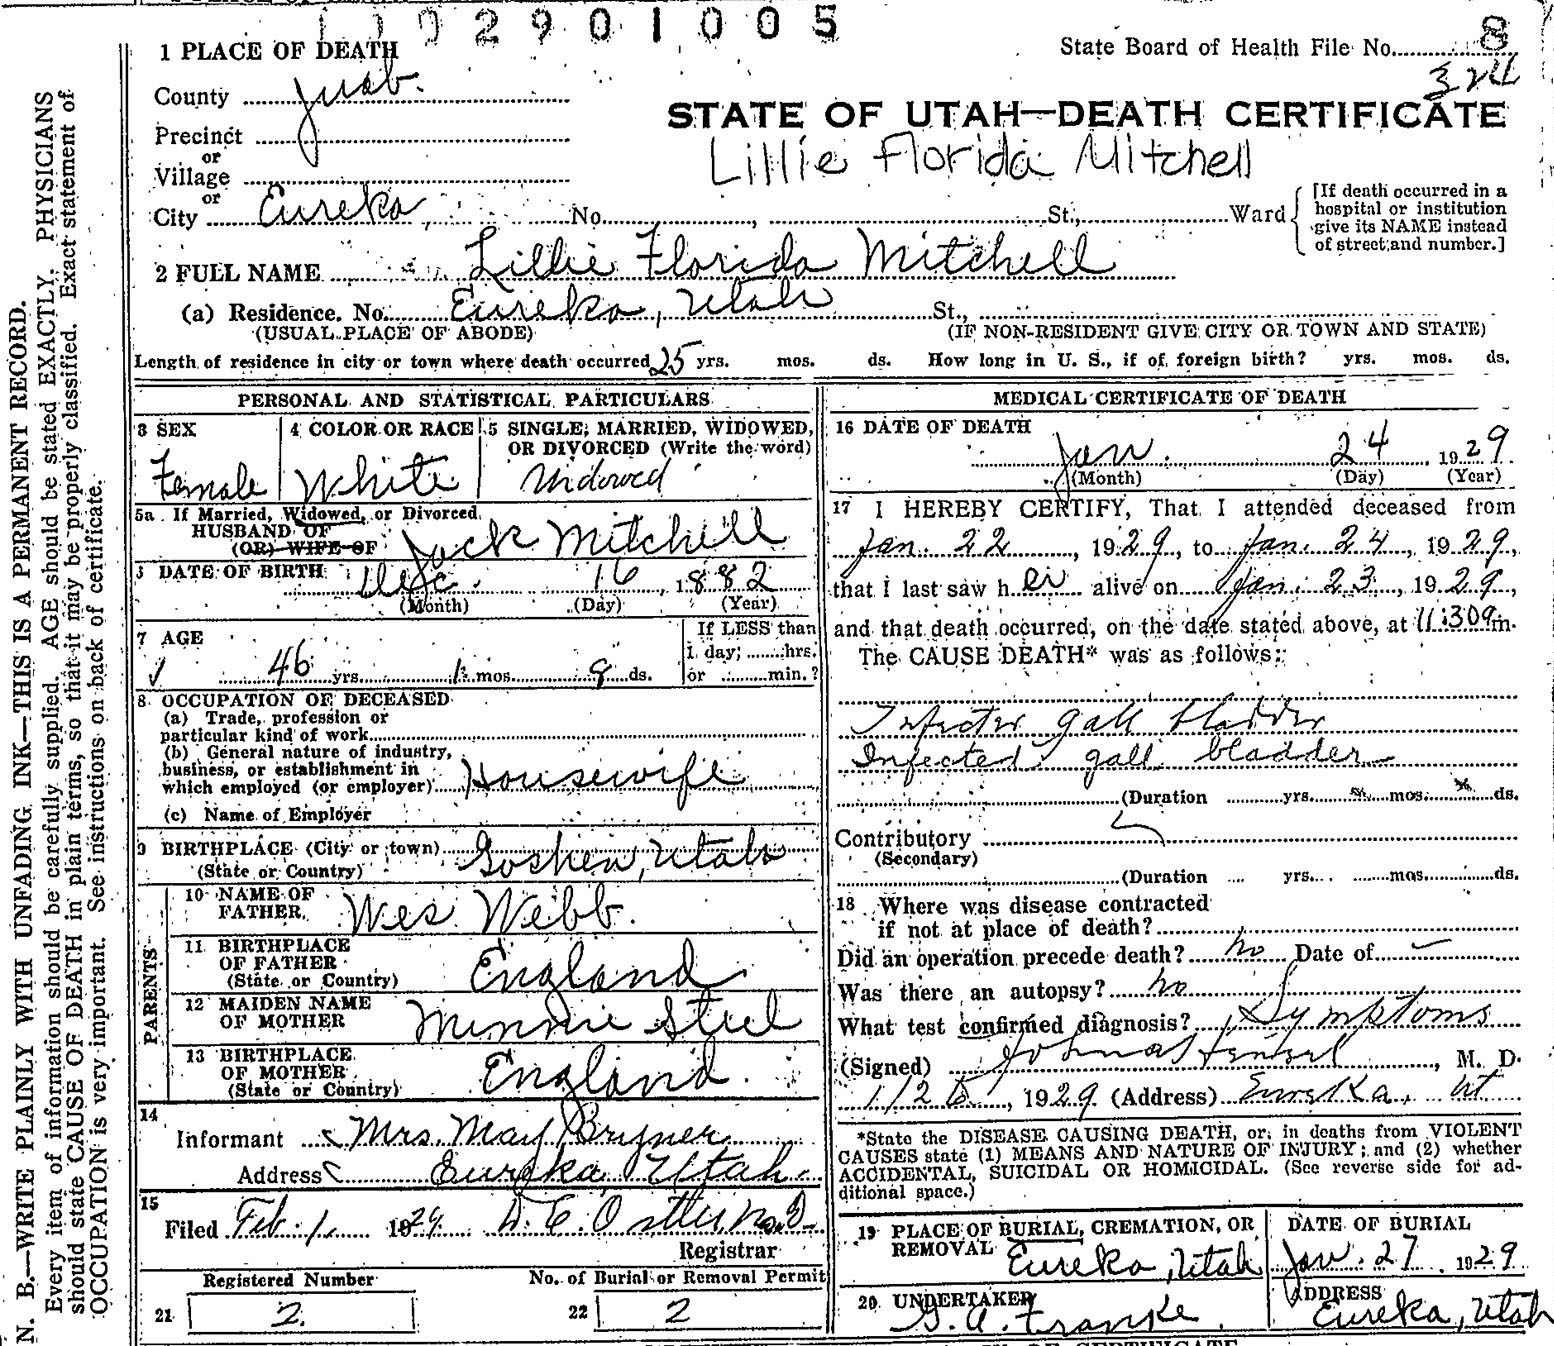 1 0 2 9 0 1 0 0 5
1 PLACE OF DEATH
State Board of Health File No. 8
324
County Juab.
STATE OF UTAH—DEATH CERTIFICATE
Precinct
or
Lillie Florida Mitchell
Village
or
City Eureka, No. , St., Ward
[If death occurred in a
hospital or institution
give its NAME instead
of street and number.]
2 FULL NAME Lillie Florida Mitchell
(a) Residence. No. Eureka, Utah St.,
(USUAL PLACE OF ABODE) (IF NON-RESIDENT GIVE CITY OR TOWN AND STATE)
Length of residence in city or town where death occurred 25 yrs. mos. ds. How long in U. S., if of foreign birth? yrs. mos. ds.
PERSONAL AND STATISTICAL PARTICULARS
3 SEX
Female
4 COLOR OR RACE
White
5 SINGLE, MARRIED, WIDOWED,
OR DIVORCED (Write the word)
Widowed
5a If Married, Widowed, or Divorced
HUSBAND OF
(OR) WIFE OF Jack Mitchell
DATE OF BIRTH Dec. 16 1882
(Month) (Day) (Year)
7 AGE
46 yrs. 1 mos. 9 ds.
If LESS than
1 day, hrs.
or min.?
8 OCCUPATION OF DECEASED
(a) Trade, profession or
particular kind of work
(b) General nature of industry,
business, or establishment in
which employed (or employer) Housewife
(c) Name of Employer
9 BIRTHPLACE (City or town) Goshen, Utah
(State or Country)
PARENTS
10 NAME OF
FATHER Wes Webb.
11 BIRTHPLACE
OF FATHER
(State or Country) England
12 MAIDEN NAME
OF MOTHER Minnie Steel
13 BIRTHPLACE
OF MOTHER
(State or Country) England.
14
Informant Mrs. May Bryner
Address Eureka, Utah.
15
Filed Feb. 1, 1929. D. E. Ostler M.D.
Registrar
Registered Number
No. of Burial or Removal Permit
21 2.
22 2
MEDICAL CERTIFICATE OF DEATH
16 DATE OF DEATH
Jan. 24, 1929
(Month) (Day) (Year)
17 I HEREBY CERTIFY, That I attended deceased from
Jan. 22, 1929, to Jan. 24, 1929,
that I last saw her alive on Jan. 23, 1929,
and that death occurred, on the date stated above, at 11:30 m.
The CAUSE DEATH* was as follows:
Infected gall bladder
Infected gall bladder
(Duration yrs. mos. ds.
Contributory
(Secondary)
(Duration yrs. mos. ds.
18 Where was disease contracted
if not at place of death?
Did an operation precede death? no Date of —
Was there an autopsy? no
What test confirmed diagnosis? Symptoms
(Signed) , M. D.
1/25, 1929 (Address) Eureka, Ut
*State the DISEASE CAUSING DEATH, or, in deaths from VIOLENT
CAUSES state (1) MEANS AND NATURE OF INJURY; and (2) whether
ACCIDENTAL, SUICIDAL OR HOMICIDAL. (See reverse side for ad-
ditional space.)
19 PLACE OF BURIAL, CREMATION, OR
REMOVAL Eureka, Utah
DATE OF BURIAL
Jan. 27 1929
20 UNDERTAKER
G. A. Franke.
ADDRESS
Eureka, Utah
N. B.—WRITE PLAINLY WITH UNFADING INK—THIS IS A PERMANENT RECORD.
Every item of information should be carefully supplied. AGE should be stated EXACTLY. PHYSICIANS
should state CAUSE OF DEATH in plain terms, so that it may be properly classified. Exact statement of
OCCUPATION is very important. See instructions on back of certificate.